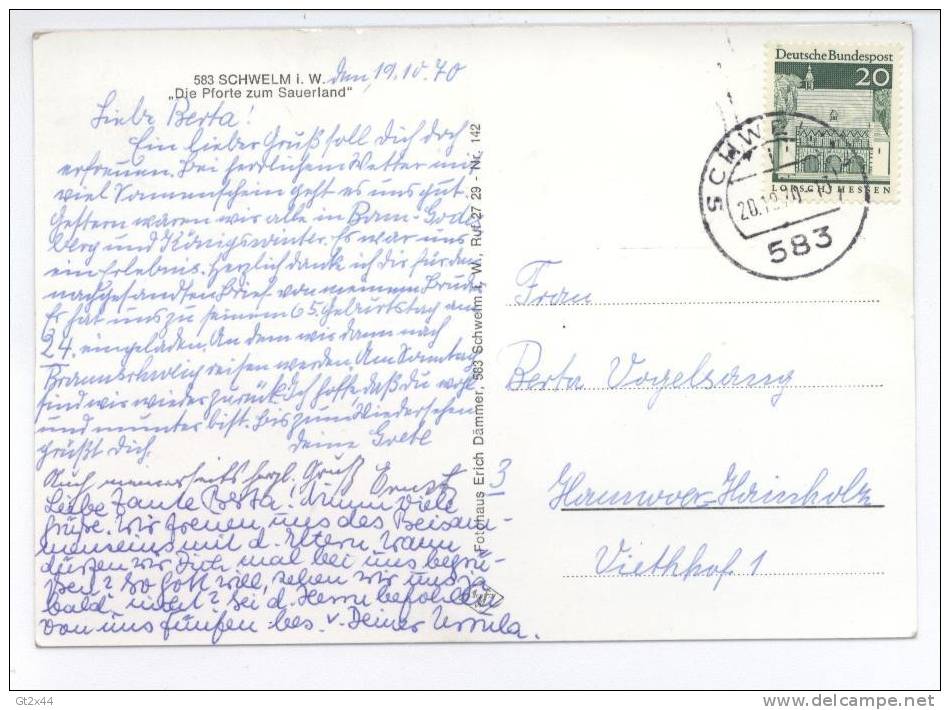 583 SCHWELM i. W.
„Die Pforte zum Sauerland"
den, 19.10.70
Liebe Berta!
Ein lieber Gruß soll dich doch
erfreuen. Bei herrlichem Wetter und
viel Sonnenschein geht es uns gut.
Gestern waren wir alle in Bonn-Godes
berg und Königswinter. Es war uns
ein Erlebnis. Herzlich dank ich dir für den
nachgesandten Brief von meinem Bruder
Er hat uns zu seinem 65. Geburtstag am
24. eingeladen. An dem wir dann nach
Braunschweig reisen werden. Am Sonntag
sind wir wieder zurück. Ich hoffe, daß du wohl
und munter bist. Bis zum Wiedersehen
grüßt dich deine Gretl
Auch meinerseits herzl. Gruß Ernst
Liebe Tante Berta! Nimm viele
Grüße. Wir freuen uns des Beisam-
menseins mit d. Eltern. Wann
dürfen wir Dich mal bei uns begrü-
ßen? So Gott will, sehen wir uns ja
bald. nicht? Sei d. Herrn befohlen
von uns fünfen bes. v. Deiner Ursula.
Fotohaus Erich Dämmer, 583 Schwelm i. W., Ruf 27 29 - Nr. 142
Deutsche Bundespost
20
LORSCH/HESSEN
SCHWE
20.10.70
583
Frau
Berta Vogelsang
3 Hannover-Hainholz
Viethhof 1
Gt2x44
delcampe.net